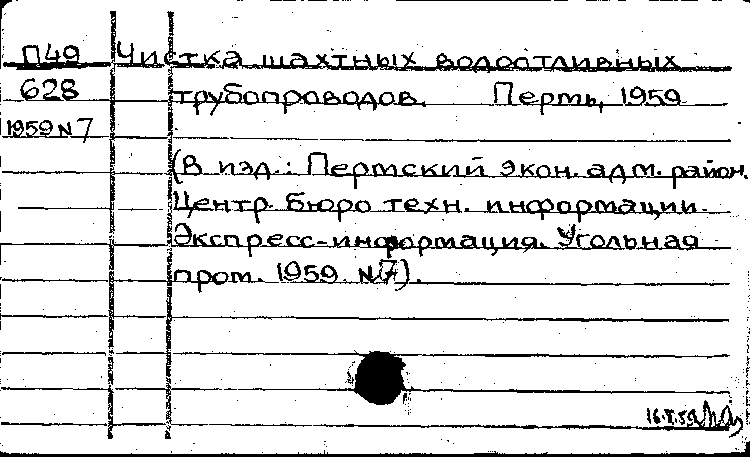 П49 Чистка шахтных водоотливных
628 трубопроводов. Пермь, 1959
1959 N 7
(В изд.: Пермский экон. адм. район.
Центр. бюро техн. информации.
Экспресс-информация. Угольная
пром. 1959. N 7).